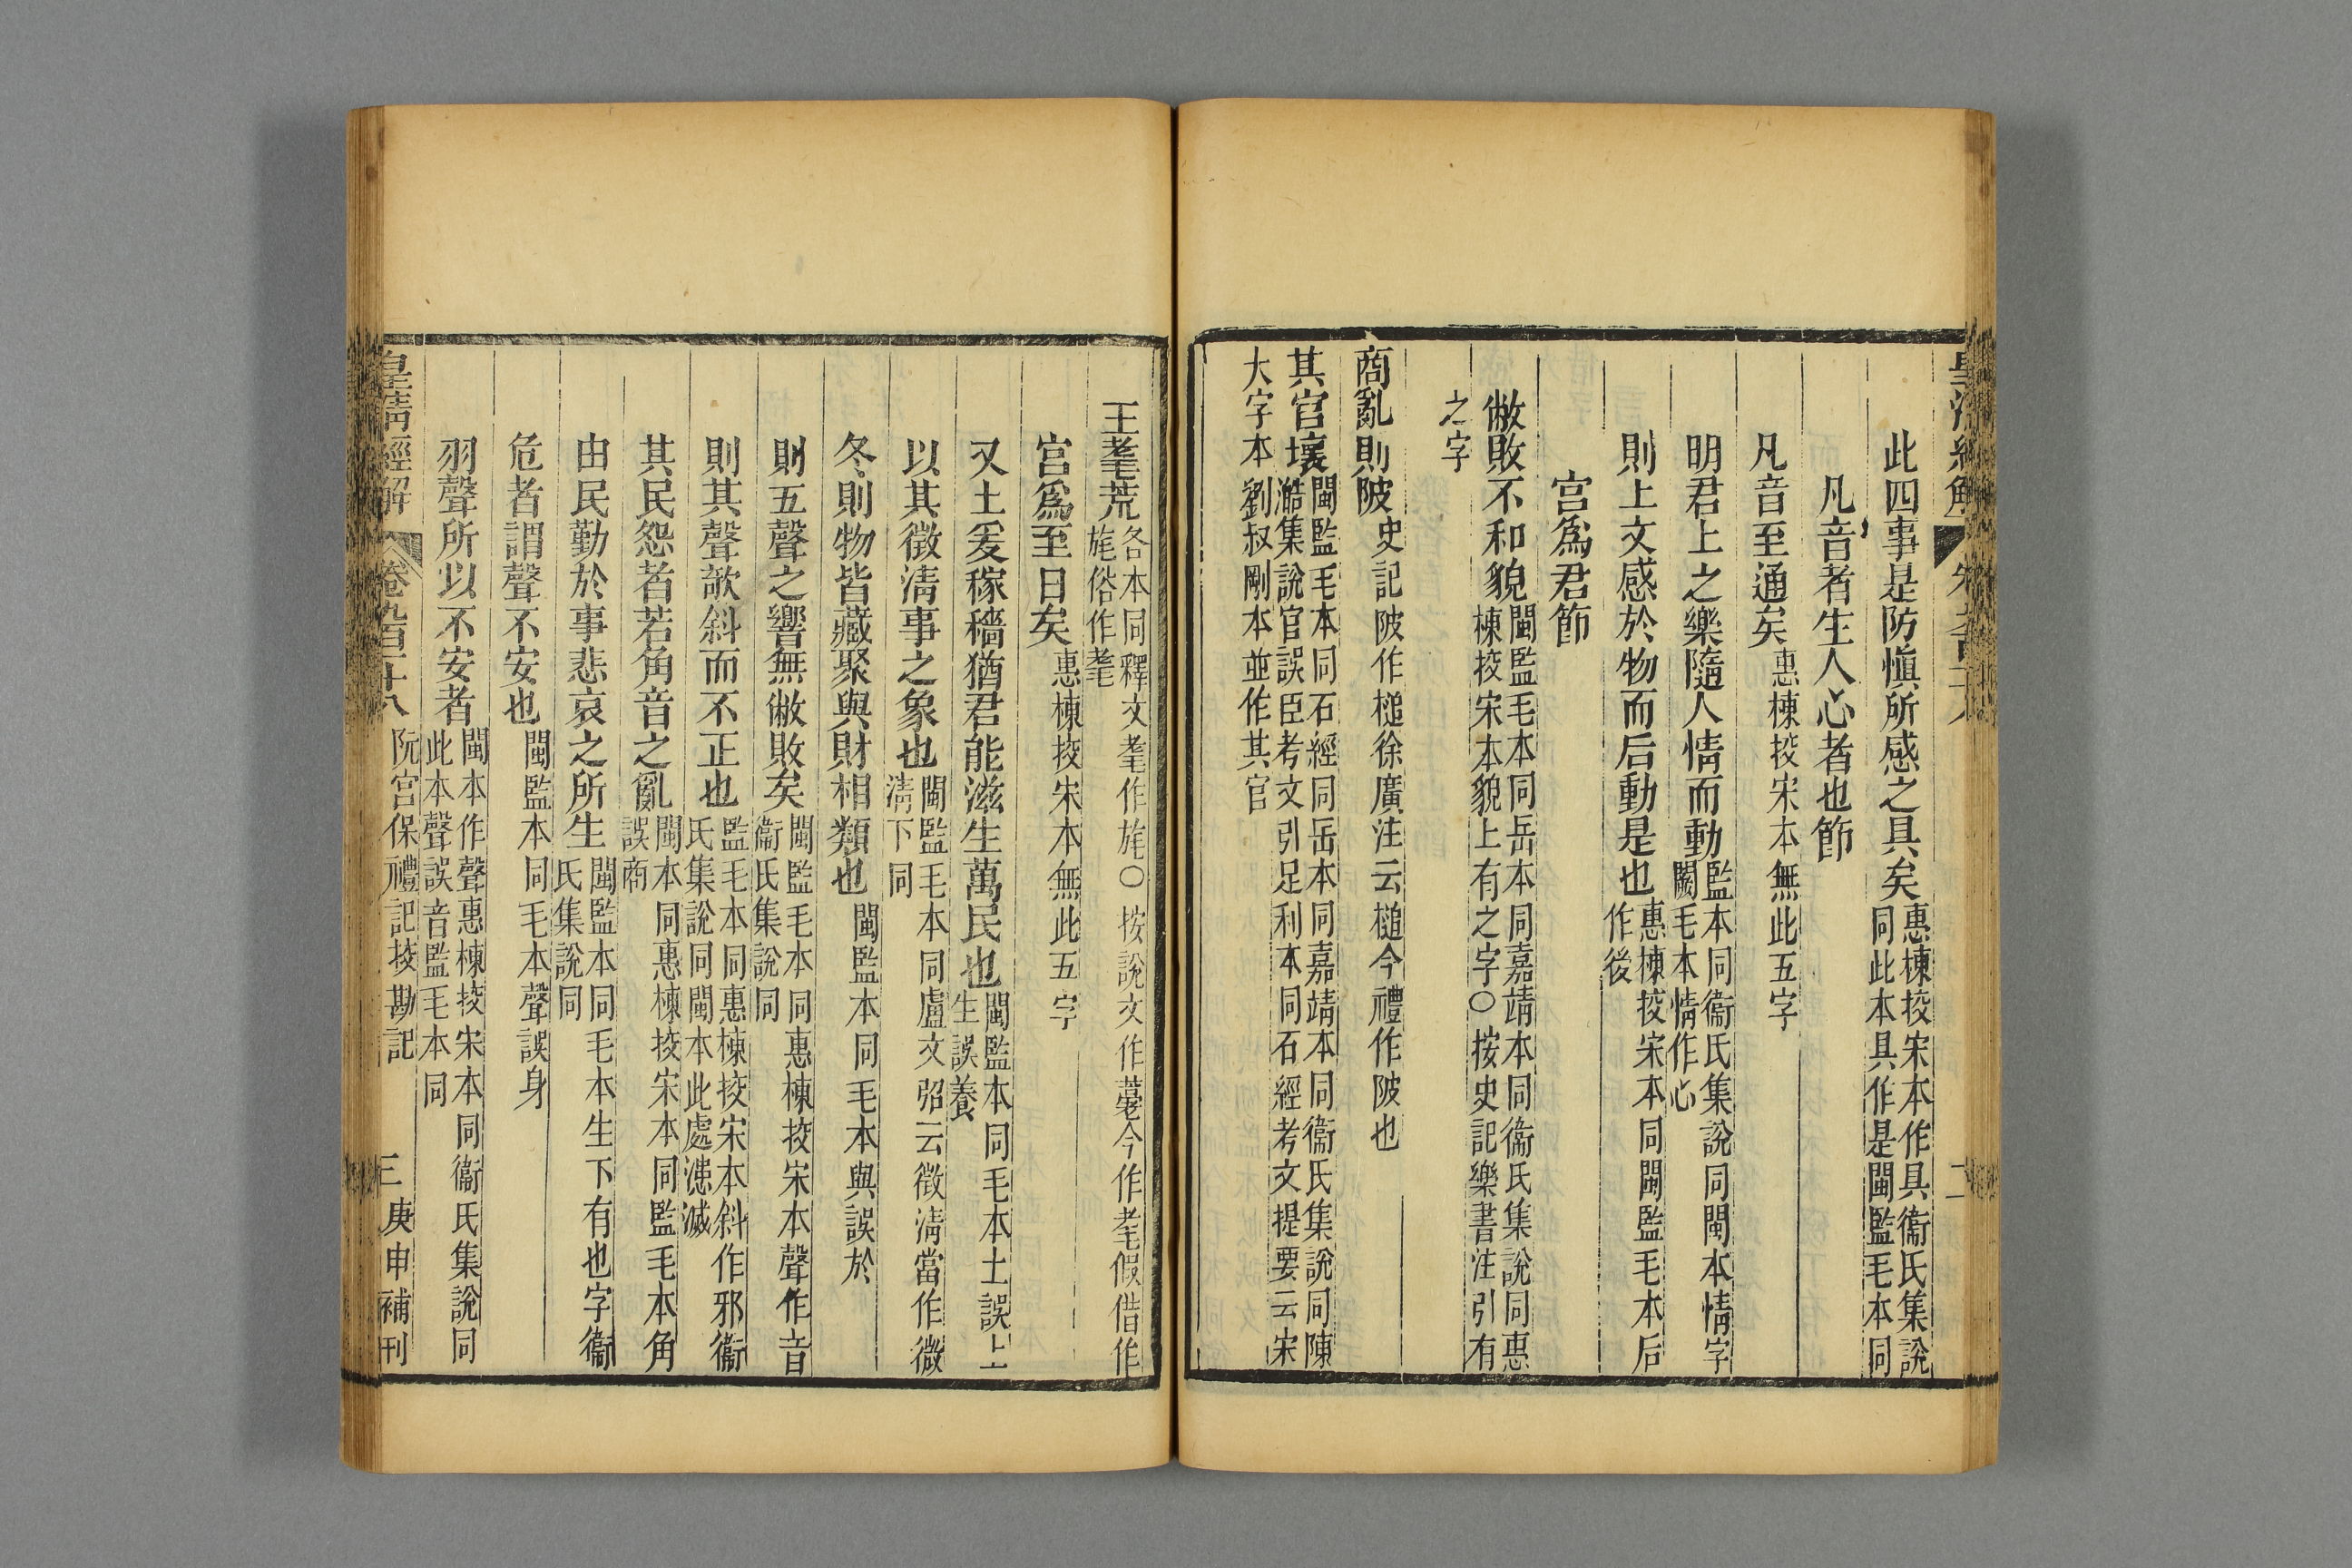 此四事是防愼所感之具矣惠棟挍宋本作具衞氏集說同此本具作是閩監毛本同
凡音者生人心者也節
凡音至通矣惠棟挍宋本無此五字
明君上之樂隨人情而動監本同衞氏集說同閩本情字闕毛本情作心
則上文感於物而后動是也惠棟挍宋本同閩監毛本后作後
宮爲君節
敝敗不和貌閩監毛本同岳本同嘉靖本同衞氏集說同惠棟挍宋本貌上有之字○按史記樂書注引有
之字
商亂則陂史記陂作槌徐廣注云槌今禮作陂也
其官壞閩監毛本同石經同岳本同嘉靖本同衞氏集說同陳澔集說官誤臣考文引足利本同石經考文提要云宋
大字本劉叔剛本並作其官
王耄荒各本同釋文耄作旄○按說文作薹今作耄假借作旄俗作耄
宮爲至日矣惠棟挍宋本無此五字
又土爰稼穡猶君能滋生萬民也閩監本同毛本土誤上生誤養
以其徵淸事之象也閩監毛本同盧文弨云徵淸當作微淸下同
冬則物皆藏聚與財相類也閩監本同毛本與誤於
則五聲之響無敝敗矣閩監毛本同惠棟挍宋本聲作音衞氏集說同
則其聲歌斜而不正也監毛本同惠棟挍宋本斜作邪衞氏集說同閩本此處漶滅
其民怨者若角音之亂閩本同惠棟挍宋本同監毛本角誤商
由民勤於事悲哀之所生閩監本同毛本生下有也字衞氏集說同
危者謂聲不安也閩監本同毛本聲誤身
羽聲所以不安者閩本作聲惠棟挍宋本同衞氏集說同此本聲誤音監毛本同
皇淸經解 卷九百二十八 阮宮保禮記挍勘記 三 庚申補刊